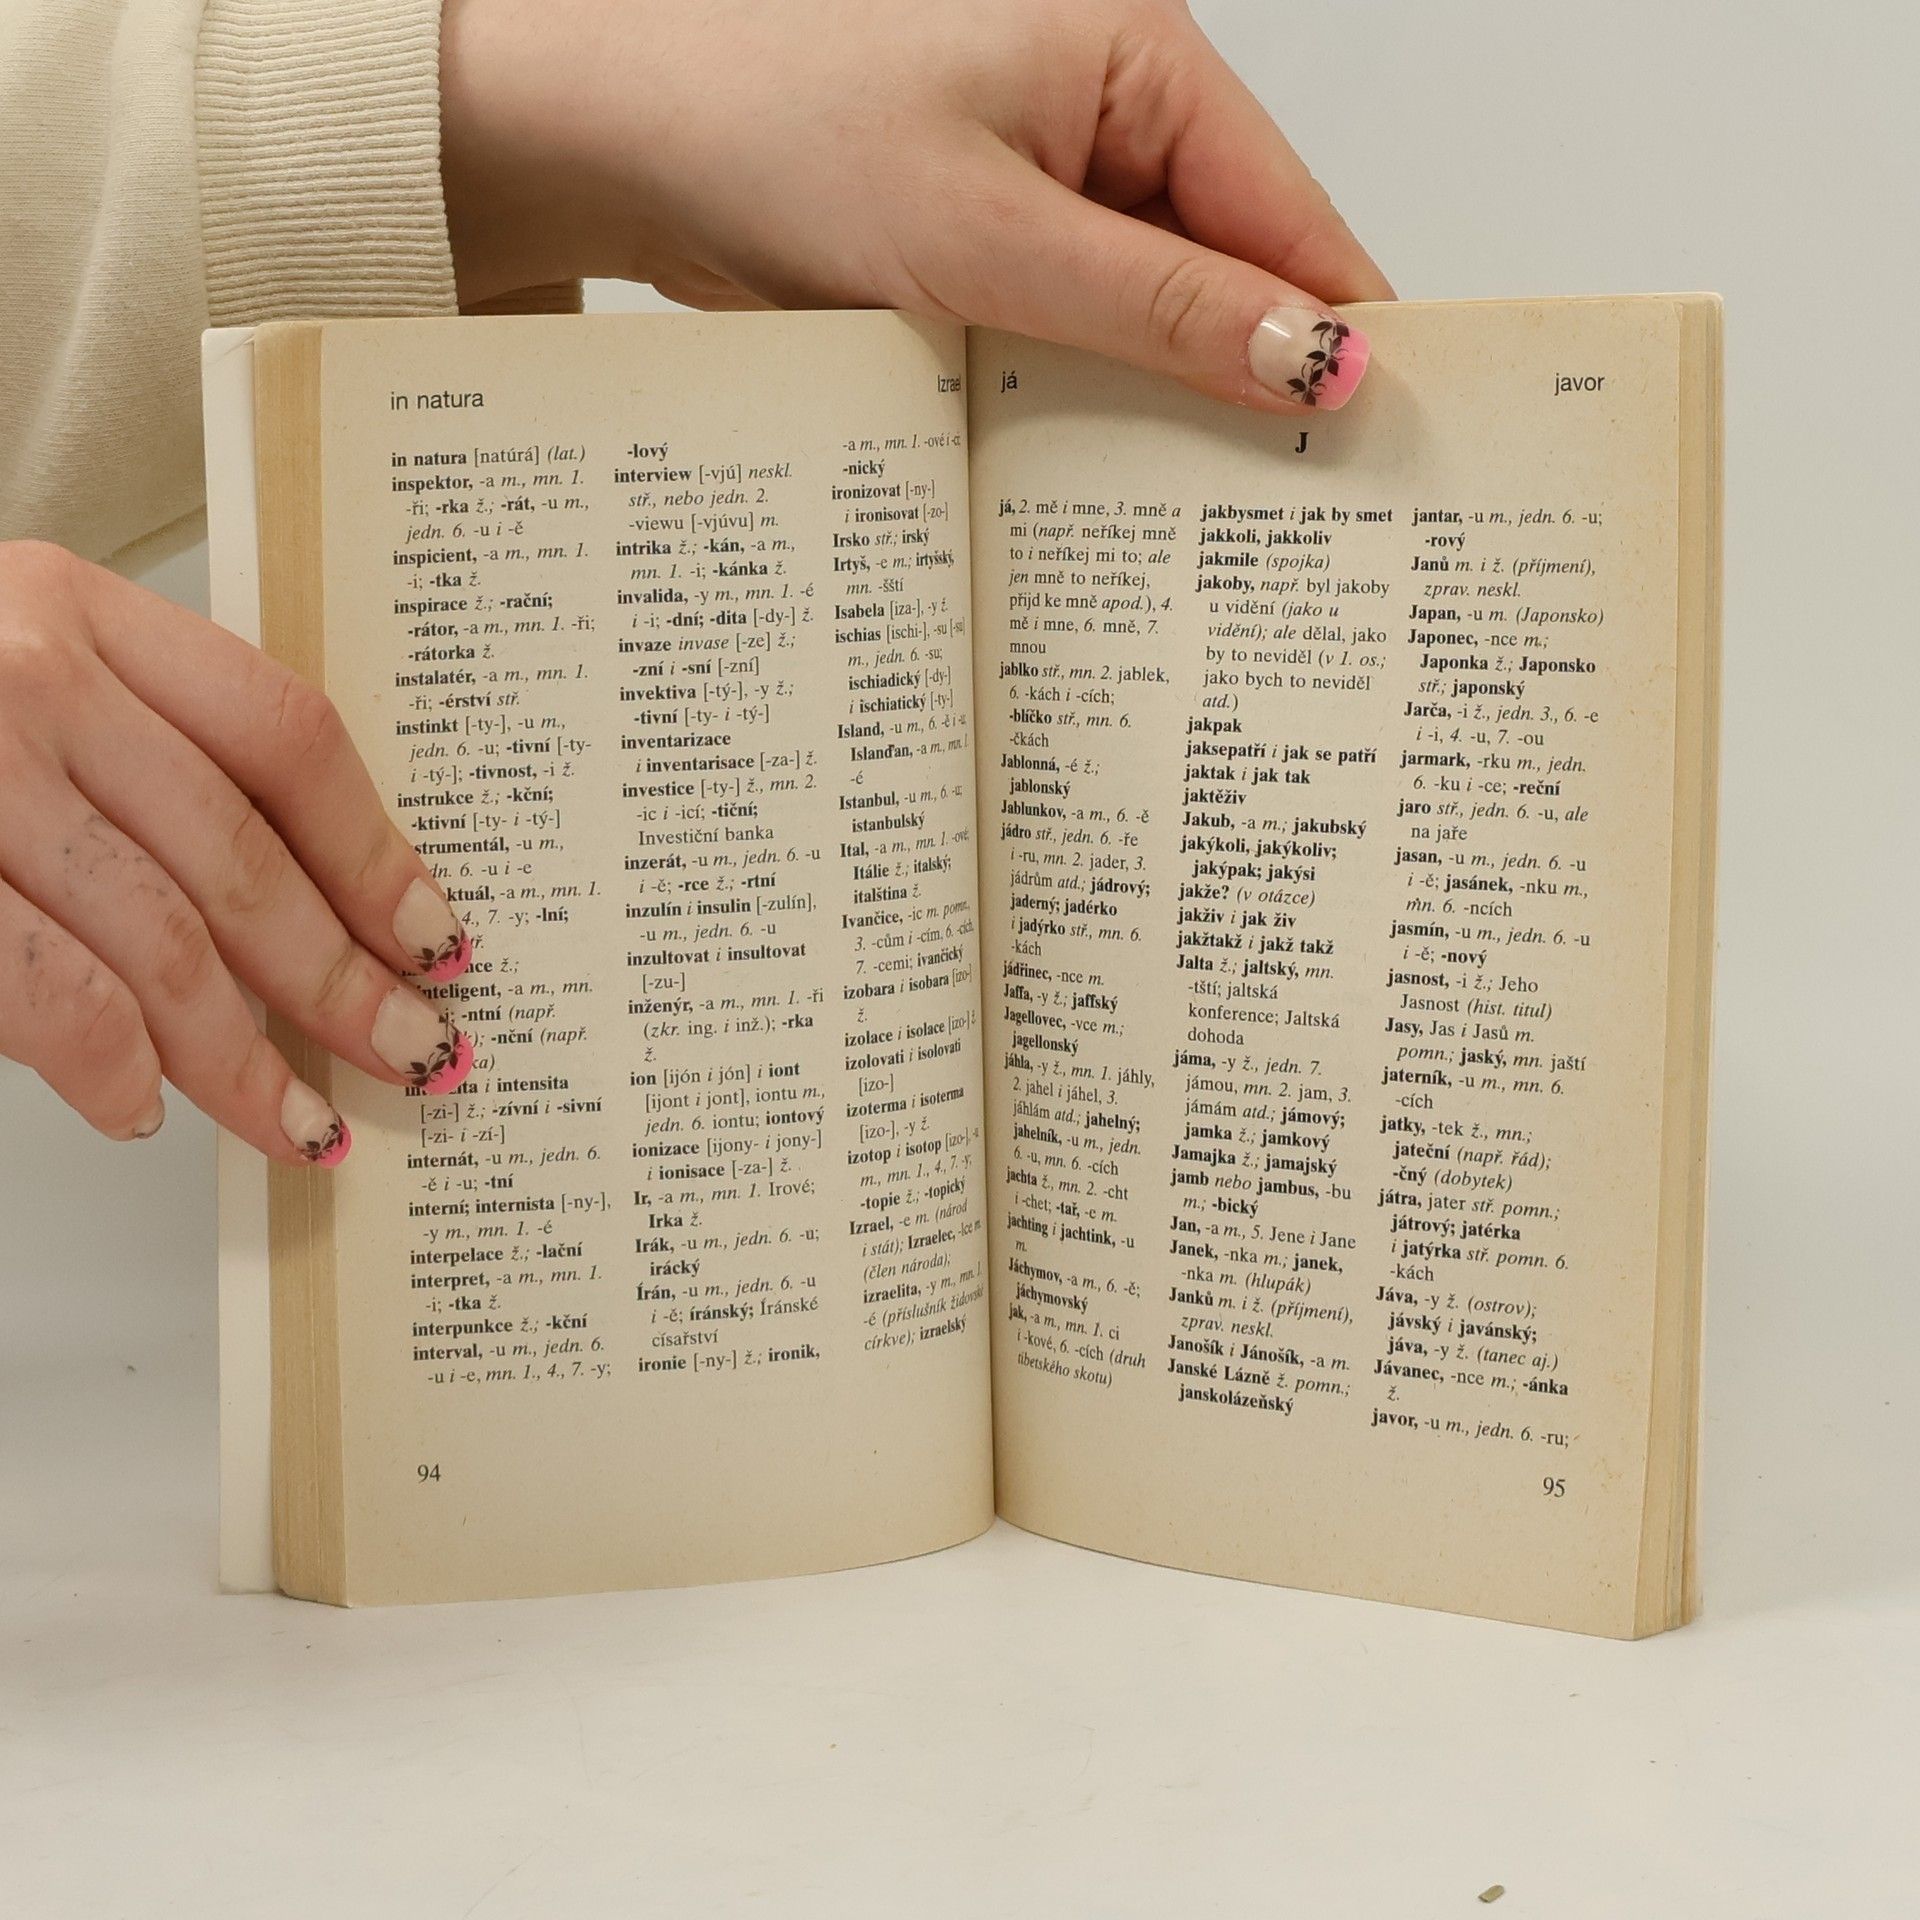 in natura
Izrael
in natura [natúrá] (lat.)
inspektor, -a m., mn. 1.
-ři; -rka ž.; -rát, -u m.,
jedn. 6. -u i -ě
inspicient, -a m., mn. 1.
-i; -tka ž.
inspirace ž.; -rační;
-rátor, -a m., mn. 1. -ři;
-rátorka ž.
instalatér, -a m., mn. 1.
-ři; -érství stř.
instinkt [-ty-], -u m.,
jedn. 6. -u; -tivní [-ty-
i -tý-]; -tivnost, -i ž.
instrukce ž.; -kční;
-ktivní [-ty- i -tý-]
strumentál, -u m.,
dn. 6. -u i -e
ktuál, -a m., mn. 1.
4., 7. -y; -lní;
nce ž.;
inteligent, -a m., mn.
-ntní (např.
); -nční (např.
ka)
i intensita
[-zi-] ž.; -zívní i -sivní
[-zi- i -zí-]
internát, -u m., jedn. 6.
-ě i -u; -tní
interní; internista [-ny-],
-y m., mn. 1. -é
interpelace ž.; -lační
interpret, -a m., mn. 1.
-i; -tka ž.
interpunkce ž.; -kční
interval, -u m., jedn. 6.
-u i -e, mn. 1., 4., 7. -y;
-lový
interview [-vjú] neskl.
stř., nebo jedn. 2.
-viewu [-vjúvu] m.
intrika ž.; -kán, -a m.,
mn. 1. -i; -kánka ž.
invalida, -y m., mn. 1. -é
i -i; -dní; -dita [-dy-] ž.
invaze invase [-ze] ž.;
-zní i -sní [-zní]
invektiva [-tý-], -y ž.;
-tivní [-ty- i -tý-]
inventarizace
i inventarisace [-za-] ž.
investice [-ty-] ž., mn. 2.
-ic i -icí; -tiční;
Investiční banka
inzerát, -u m., jedn. 6. -u
i -ě; -rce ž.; -rtní
inzulín i insulin [-zulín],
-u m., jedn. 6. -u
inzultovat i insultovat
[-zu-]
inženýr, -a m., mn. 1. -ři
(zkr. ing. i inž.); -rka
ž.
ion [ijón i jón] i iont
[ijont i jont], iontu m.,
jedn. 6. iontu; iontový
ionizace [ijony- i jony-]
i ionisace [-za-] ž.
Ir, -a m., mn. 1. Irové;
Irka ž.
Irák, -u m., jedn. 6. -u;
irácký
Írán, -u m., jedn. 6. -u
i -ě; íránský; Íránské
císařství
ironie [-ny-] ž.; ironik,
-a m., mn. 1. -ové i -ci;
-nický
ironizovat [-ny-]
i ironisovat [-zo-]
Irsko stř.; irský
Irtyš, -e m.; irtyšský,
mn. -šští
Isabela [iza-], -y ž.
ischias [ischi-], -su [-su]
m., jedn. 6. -su;
ischiadický [-dy-]
i ischiatický [-ty-]
Island, -u m., 6. -ě i -u;
Islanďan, -a m., mn. 1.
-é
Istanbul, -u m., 6. -u;
istanbulský
Ital, -a m., mn. 1. -ové;
Itálie ž.; italský;
italština ž.
Ivančice, -ic m. pomn.,
3. -cům i -cím, 6. -cích,
7. -cemi; ivančický
izobara i isobara [izo-]
ž.
izolace i isolace [izo-] ž.
izolovati i isolovati
[izo-]
izoterma i isoterma
[izo-], -y ž.
izotop i isotop [izo-], -u
m., mn. 1., 4., 7. -y,
-topie ž.; -topický
Izrael, -e m. (národ
i stát); Izraelec, -lce m.
(člen národa);
izraelita, -y m., mn. 1.
-é (příslušník židovské
církve); izraelský
94
já
javor
J
já, 2. mě i mne, 3. mně a
mi (např. neříkej mně
to i neříkej mi to; ale
jen mně to neříkej,
přijd ke mně apod.), 4.
mě i mne, 6. mně, 7.
mnou
jablko stř., mn. 2. jablek,
6. -kách i -cích;
-blíčko stř., mn. 6.
-čkách
Jablonná, -é ž.;
jablonský
Jablunkov, -a m., 6. -ě
jádro stř., jedn. 6. -ře
i -ru, mn. 2. jader, 3.
jádrům atd.; jádrový;
jaderný; jadérko
i jadýrko stř., mn. 6.
-kách
jádřinec, -nce m.
Jaffa, -y ž.; jaffský
Jagellovec, -vce m.;
jagellonský
jáhla, -y ž., mn. 1. jáhly,
2. jahel i jáhel, 3.
jáhlám atd.; jahelný;
jahelník, -u m., jedn.
6. -u, mn. 6. -cích
jachta ž., mn. 2. -cht
i -chet; -tař, -e m.
jachting i jachtink, -u
m.
Jáchymov, -a m., 6. -ě;
jáchymovský
jak, -a m., mn. 1. ci
i -kové, 6. -cích (druh
tibetského skotu)
jakbysmet i jak by smet
jakkoli, jakkoliv
jakmile (spojka)
jakoby, např. byl jakoby
u vidění (jako u
vidění); ale dělal, jako
by to neviděl (v 1. os.;
jako bych to neviděl
atd.)
jakpak
jaksepatří i jak se patří
jaktak i jak tak
jaktěživ
Jakub, -a m.; jakubský
jakýkoli, jakýkoliv;
jakýpak; jakýsi
jakže? (v otázce)
jakživ i jak živ
jakžtakž i jakž takž
Jalta ž.; jaltský, mn.
-tští; jaltská
konference; Jaltská
dohoda
jáma, -y ž., jedn. 7.
jámou, mn. 2. jam, 3.
jámám atd.; jámový;
jamka ž.; jamkový
Jamajka ž.; jamajský
jamb nebo jambus, -bu
m.; -bický
Jan, -a m., 5. Jene i Jane
Janek, -nka m.; janek,
-nka m. (hlupák)
Janků m. i ž. (příjmení),
zprav. neskl.
Janošík i Jánošík, -a m.
Janské Lázně ž. pomn.;
janskolázeňský
jantar, -u m., jedn. 6. -u;
-rový
Janů m. i ž. (příjmení),
zprav. neskl.
Japan, -u m. (Japonsko)
Japonec, -nce m.;
Japonka ž.; Japonsko
stř.; japonský
Jarča, -i ž., jedn. 3., 6. -e
i -i, 4. -u, 7. -ou
jarmark, -rku m., jedn.
6. -ku i -ce; -reční
jaro stř., jedn. 6. -u, ale
na jaře
jasan, -u m., jedn. 6. -u
i -ě; jasánek, -nku m.,
mn. 6. -ncích
jasmín, -u m., jedn. 6. -u
i -ě; -nový
jasnost, -i ž.; Jeho
Jasnost (hist. titul)
Jasy, Jas i Jasů m.
pomn.; jaský, mn. jaští
jaterník, -u m., mn. 6.
-cích
jatky, -tek ž., mn.;
jateční (např. řád);
-čný (dobytek)
játra, jater stř. pomn.;
játrový; jatérka
i jatýrka stř. pomn. 6.
-kách
Jáva, -y ž. (ostrov);
jávský i javánský;
jáva, -y ž. (tanec aj.)
Jávanec, -nce m.; -ánka
ž.
javor, -u m., jedn. 6. -ru;
95